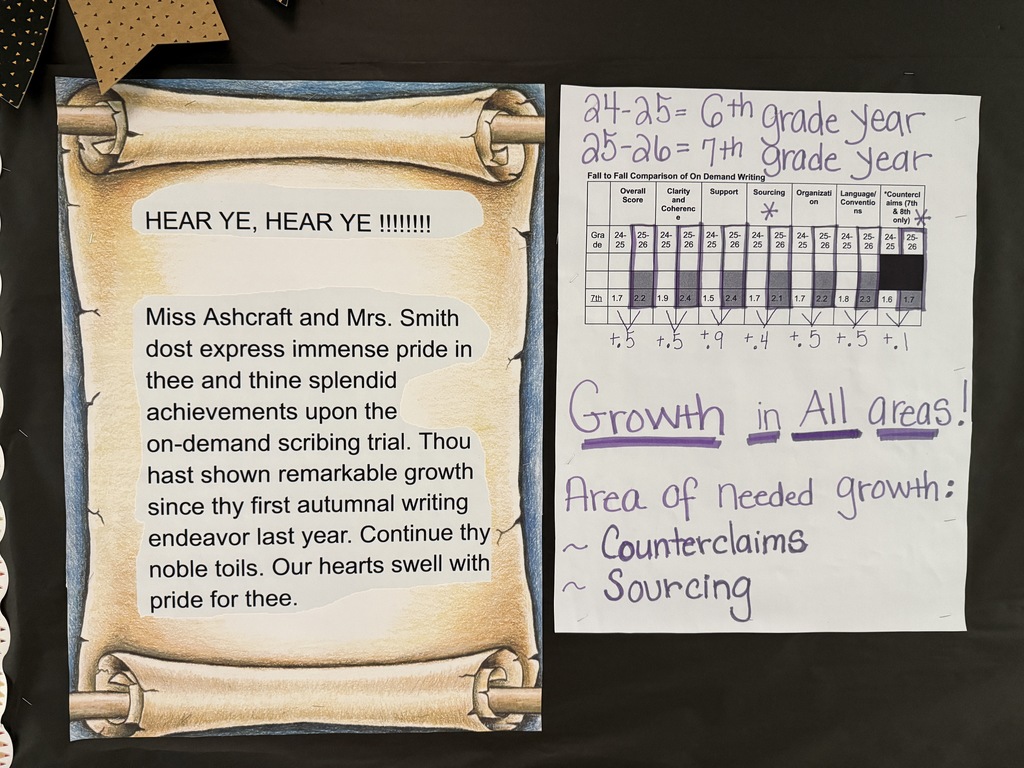 HEAR YE, HEAR YE !!!!!!!!
Miss Ashcraft and Mrs. Smith
dost express immense pride in
thee and thine splendid
achievements upon the
on-demand scribing trial. Thou
hast shown remarkable growth
since thy first autumnal writing
endeavor last year. Continue thy
noble toils. Our hearts swell with
pride for thee.
24-25= 6th grade year
25-26= 7th grade year
Fall to Fall Comparison of On Demand Writing
Overall Score Clarity and Coherenc e Support Sourcing * Organizati on Language/ Conventio ns *Countercl aims (7th & 8th only) *
Gra de 24-25 25-26 24-25 25-26 24-25 25-26 24-25 25-26 24-25 25-26 24-25 25-26 24-25 25-26
7th 1.7 2.2 1.9 2.4 1.5 2.4 1.7 2.1 1.7 2.2 1.8 2.3 1.6 1.7
+.5 +.5 +.9 +.4 +.5 +.5 +.1
Growth in All areas!
Area of needed growth:
~ Counterclaims
~ Sourcing